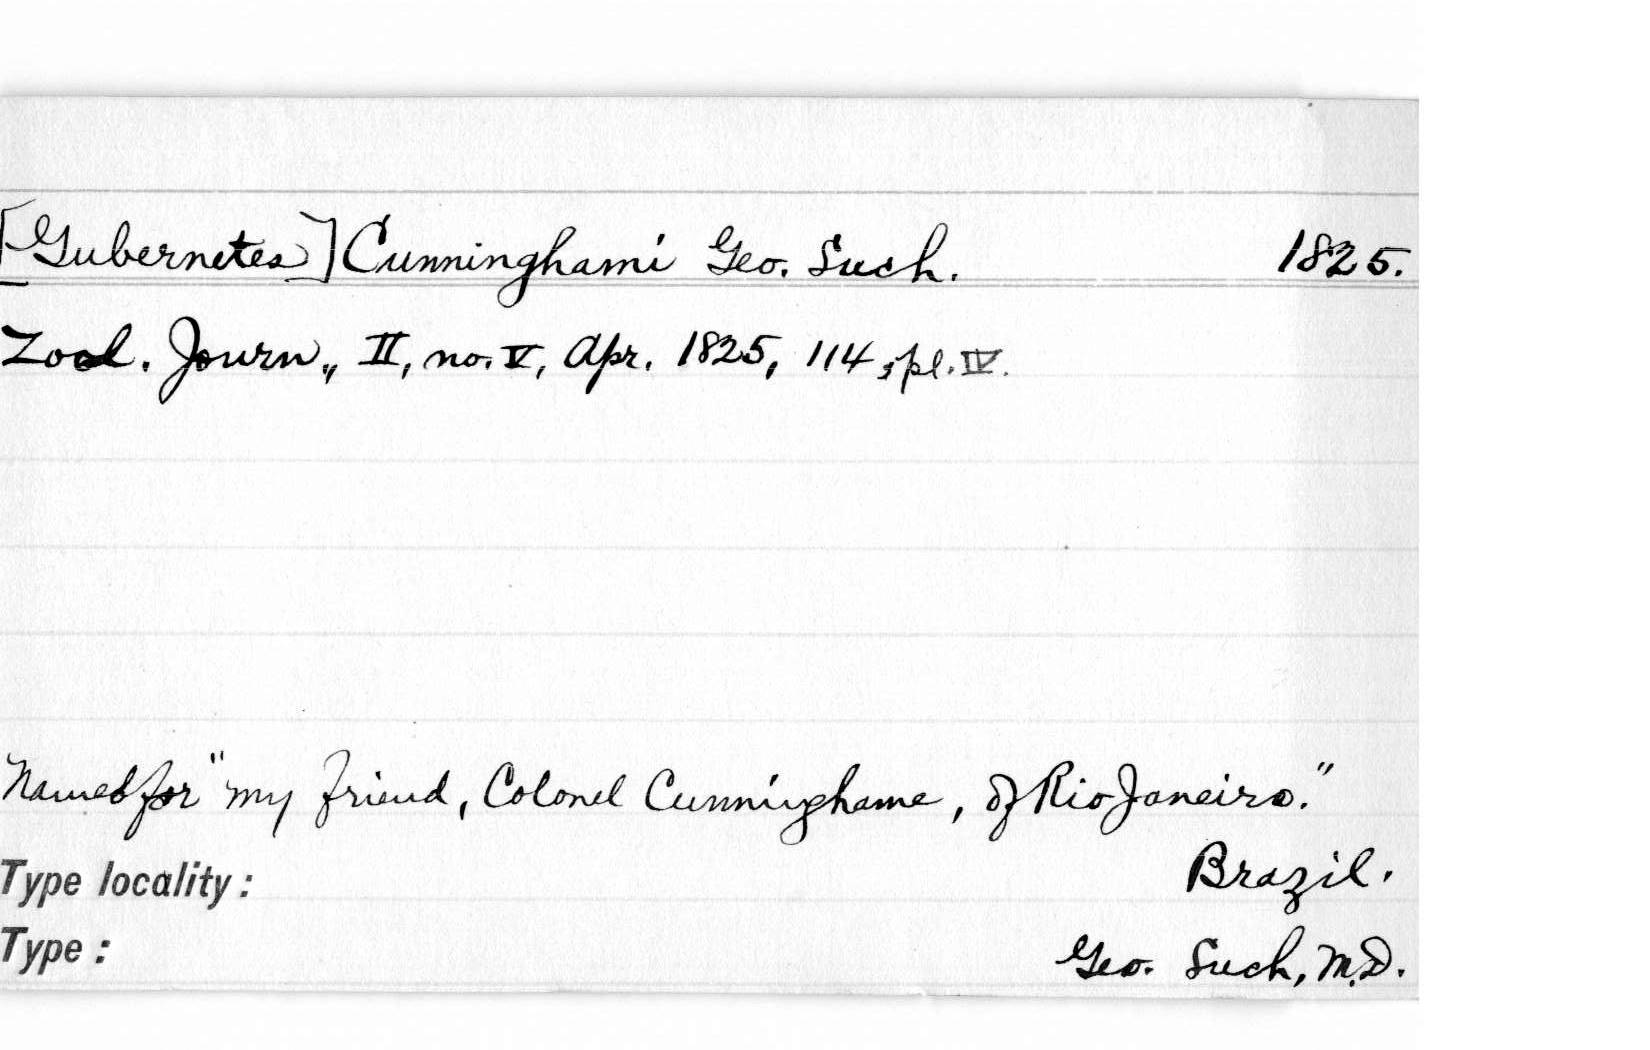 [Gubernetes] Cunninghami Geo. Such. 1825.
Zool. Journ., II, no. V, Apr. 1825, 114, pl. IV.
Named for "my friend, Colonel Cunninghame, of Rio Janeiro."
Type locality: Brazil.
Type: Geo. Such, M.D.